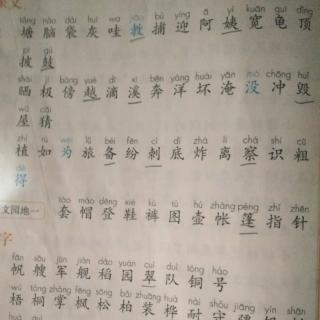 táng nǎo dài huī wā jiào bǔ yíng ā yí kuān guī dǐng
塘 脑 袋 灰 哇 教 捕 迎 阿 姨 宽 龟 顶
pī gǔ
披 鼓
shài jí bàng yuè dī xī bēn yáng huài yān mò chōng huǐ
晒 极 傍 越 滴 溪 奔 洋 坏 淹 没 冲 毁
wū cāi
屋 猜
zhí rú wéi lǚ bèi fēn cì dǐ zhá lí chá shí cū
植 如 为 旅 备 纷 刺 底 炸 离 察 识 粗
dé
得
文园地一
tào mào dēng xié kù tú hú zhàng péng zhǐ zhēn
套 帽 登 鞋 裤 图 壶 帐 篷 指 针
字
fān sōu jūn jiàn dào yuán cuì duì tóng hào
帆 艘 军 舰 稻 园 翠 队 铜 号
wú tóng zhǎng fēng sōng bǎi zhuāng huà nài shǒu jiāng
梧 桐 掌 枫 松 柏 装 桦 耐 守